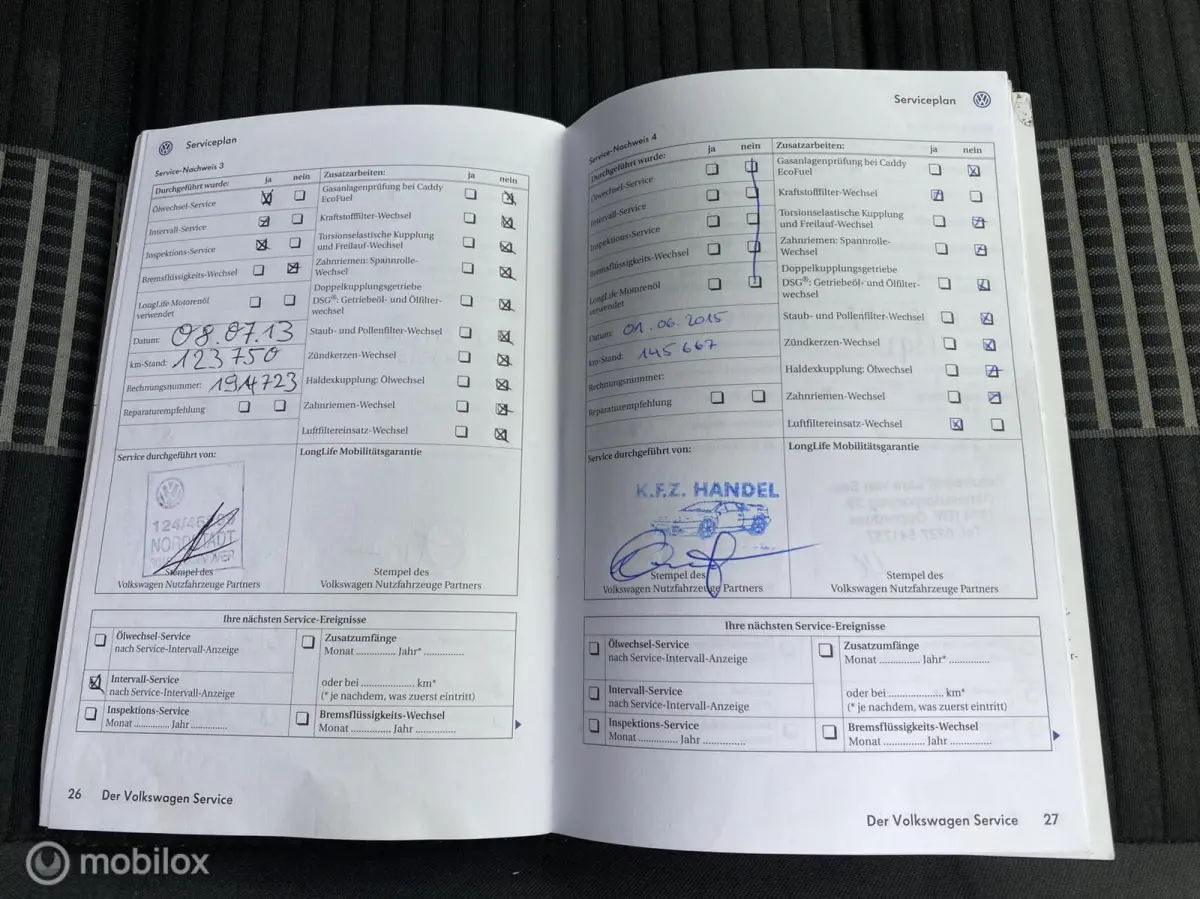 Serviceplan
Service-Nachweis 3
Durchgeführt wurde: ja nein
Ölwechsel-Service
Intervall-Service
Inspektions-Service
Bremsflüssigkeits-Wechsel
LongLife Motorenöl
verwendet
Datum: 08.07.13
km-Stand: 123750
Rechnungsnummer: 194723
Reparaturempfehlung
Zusatzarbeiten: ja nein
Gasanlagenprüfung bei Caddy
EcoFuel
Kraftstofffilter-Wechsel
Torsionselastische Kupplung
und Freilauf-Wechsel
Zahnriemen: Spannrolle-
Wechsel
Doppelkupplungsgetriebe
DSG®: Getriebeöl- und Ölfilter-
wechsel
Staub- und Pollenfilter-Wechsel
Zündkerzen-Wechsel
Haldexkupplung: Ölwechsel
Zahnriemen-Wechsel
Luftfiltereinsatz-Wechsel
Service durchgeführt von:
NORDSTADT
Stempel des
Volkswagen Nutzfahrzeuge Partners
LongLife Mobilitätsgarantie
Stempel des
Volkswagen Nutzfahrzeuge Partners
Ihre nächsten Service-Ereignisse
Ölwechsel-Service
nach Service-Intervall-Anzeige
Intervall-Service
nach Service-Intervall-Anzeige
Inspektions-Service
Monat ............ Jahr ............
Zusatzumfänge
Monat ............ Jahr* ............
oder bei .................. km*
(* je nachdem, was zuerst eintritt)
Bremsflüssigkeits-Wechsel
Monat ............ Jahr ............
26 Der Volkswagen Service
Serviceplan
Service-Nachweis 4
Durchgeführt wurde: ja nein
Ölwechsel-Service
Intervall-Service
Inspektions-Service
Bremsflüssigkeits-Wechsel
LongLife Motorenöl
verwendet
Datum: 01.06.2015
km-Stand: 145667
Rechnungsnummer:
Reparaturempfehlung
Zusatzarbeiten: ja nein
Gasanlagenprüfung bei Caddy
EcoFuel
Kraftstofffilter-Wechsel
Torsionselastische Kupplung
und Freilauf-Wechsel
Zahnriemen: Spannrolle-
Wechsel
Doppelkupplungsgetriebe
DSG®: Getriebeöl- und Ölfilter-
wechsel
Staub- und Pollenfilter-Wechsel
Zündkerzen-Wechsel
Haldexkupplung: Ölwechsel
Zahnriemen-Wechsel
Luftfiltereinsatz-Wechsel
Service durchgeführt von:
K.F.Z. HANDEL
Stempel des
Volkswagen Nutzfahrzeuge Partners
LongLife Mobilitätsgarantie
Stempel des
Volkswagen Nutzfahrzeuge Partners
Ihre nächsten Service-Ereignisse
Ölwechsel-Service
nach Service-Intervall-Anzeige
Intervall-Service
nach Service-Intervall-Anzeige
Inspektions-Service
Monat ............ Jahr ............
Zusatzumfänge
Monat ............ Jahr* ............
oder bei .................. km*
(* je nachdem, was zuerst eintritt)
Bremsflüssigkeits-Wechsel
Monat ............ Jahr ............
Der Volkswagen Service 27
mobilox